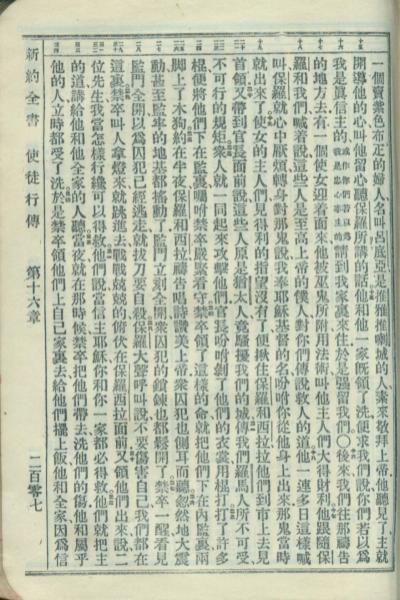 一個賣紫色布疋的婦人名叫呂底亞是推雅推喇城的人素來敬拜上帝他聽見了主就
開導他的心叫他留心聽保羅所講的話他和他一家既領了洗便求我們說你們若以爲
我是眞信主的請到我家裏來住於是强留我們〇後來我們往那禱告
的地方去有一個使女迎着面來他被巫鬼所附用法術叫他主人們大得財利他跟隨保
羅和我們喊着說這些人是至高上帝的僕人對你們傳說救人的道他一連多日這樣喊
叫保羅就心中厭煩轉身對那鬼說我奉耶穌基督的名吩咐你從他身上出來那鬼當時
就出來了使女的主人們見得利的指望沒有了便揪住保羅和西拉拉他們到市上去見
首領又帶到官長面前說這些人原是猶太人竟騷擾我們的城傳我們羅馬人所不可受
不可行的規矩衆人就一同起來攻擊他們官長吩咐剝了他們的衣裳用棍打打了許多
棍便將他們下在監裏囑咐禁卒嚴緊看守禁卒領了這樣的命就把他們下在內監裏兩
脚上了木狗約在半夜保羅和西拉禱告唱詩讚美上帝衆囚犯也側耳而聽忽然地大震
動甚至監牢的地基都搖動了監門立刻全開衆囚犯的鎖鍊也都鬆開了禁卒一醒看見
監門全開以爲囚犯已經逃走就拔刀要自殺保羅大聲呼叫說不要傷害自己我們都在
這裏禁卒叫人拿燈來就跳進去戰戰兢兢的俯伏在保羅西拉面前又領他們出來說二
位先生我當怎樣行纔可以得救他們說當信主耶穌你和你一家都必得救他們就把主
的道講給他和他全家的人聽當夜就在那時候禁卒把他們帶去洗他們的傷他和屬乎
他的人立時都受了洗於是禁卒領他們上自己家裏去給他們擺上飯他和全家因爲信
新約全書 使徒行傳 第十六章 二百零七